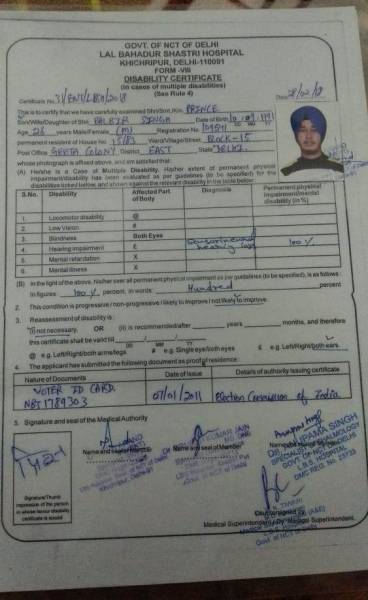 GOVT. OF NCT OF DELHI
LAL BAHADUR SHASTRI HOSPITAL
KHICHRIPUR, DELHI-110091
FORM -VIII
DISABILITY CERTIFICATE
(In cases of multiple disabilities)
(See Rule 4)
Certificate No. Date:
This is to certify that we have carefully examined Shri/Smt./Km. PRINCE
Son/Wife/Daughter of Shri BALBIR SINGH Date of Birth
DD MM YY
Age 26 years Male/Female (M) Registration No.
permanent resident of House No. 15/83 Ward/Village/Street BLOCK-15
Post Office GEETA COLONY District EAST State DELHI
whose photograph is affixed above, and am satisfied that:
(A) He/she is a Case of Multiple Disability. His/her extent of permanent physical
impairment/disability has been evaluated as per guidelines (to be specified) for the
disabilities ticked below, and shown against the relevant disability in the table below
S.No. Disability Affected Part of Body Diagnosis Permanent physical impairment/mental disability (in %)
1. Locomotor disability @
2. Low Vision #
3. Blindness Both Eyes
4. Hearing impairment £ Sensorineural hearing loss 100%
5. Mental retardation X
6. Mental illness X
(B) In the light of the above, his/her over all permanent physical impairment as per guidelines (to be specified), is as follows
In figures 100% percent, in words: Hundred percent
2. This condition is progressive / non-progressive / likely to improve / not likely to improve.
3. Reassessment of disability is:
(i) not necessary. OR (ii) is recommended/after years months, and therefore
this certificate shall be valid till
DD MM YY
@ e.g. Left/Right/both arms/legs # e.g. Single eye/both eyes £ e.g. Left/Right/both ears.
4. The applicant has submitted the following document as proof of residence:
Nature of Documents Date of Issue Details of authority issuing certificate
VOTER ID CARD. 07/01/2011 Election Commission of India
NBJ1789303
5. Signature and seal of the Medical Authority
ANUPAMA SINGH
SPECIALIST OPHTHALMOLOGY
GOVT. OF NCT DELHI
L.B.S. HOSPITAL
DMC REG. NO.
Name and seal of Member Name and seal of Member
Signature/Thumb
impression of the person
in whose favour disability
certificate is issued
Countersigned by
Medical Superintendent/Dy. Medical Superintendent
Govt. of NCT of Delhi